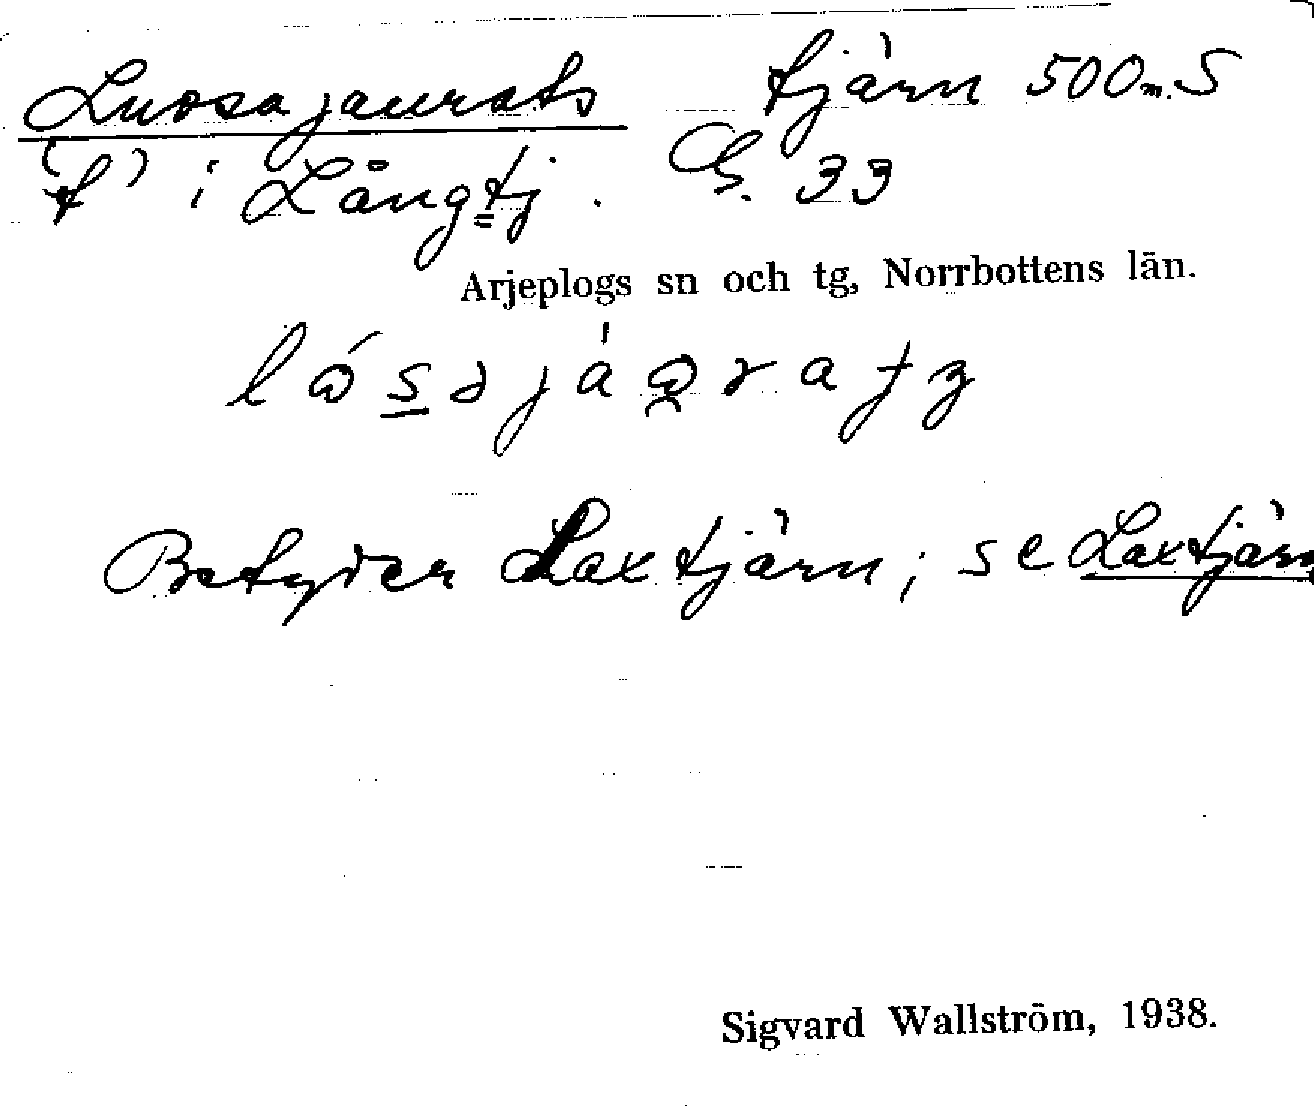 Luosajaurats tjärn 500 m. S
"t" i Långtj. G. 33
Arjeplogs sn och tg, Norrbottens län.
Betyder Laxtjärn; se Laxtjärn
Sigvard Wallström, 1938.